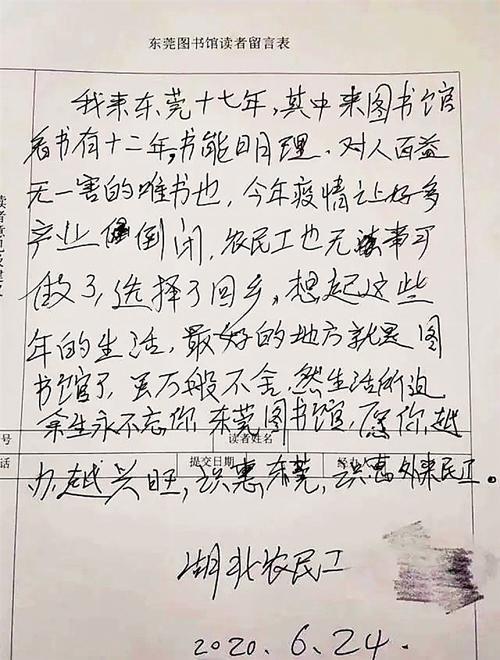 东莞图书馆读者留言表
我来东莞十七年,其中来图书馆
看书有十二年,书能明理、对人百益
无一害的唯书也,今年疫情让好多
产业倒闭,农民工也无事可
做了,选择了回乡,想起这些
年的生活,最好的地方就是图
书馆了,虽万般不舍,然生活所迫
余生永不忘你,东莞图书馆,愿你越
号
读者姓名
办越兴旺,识惠东莞,识惠外来民工。
话
提交日期
湖北农民工
2020.6.24.